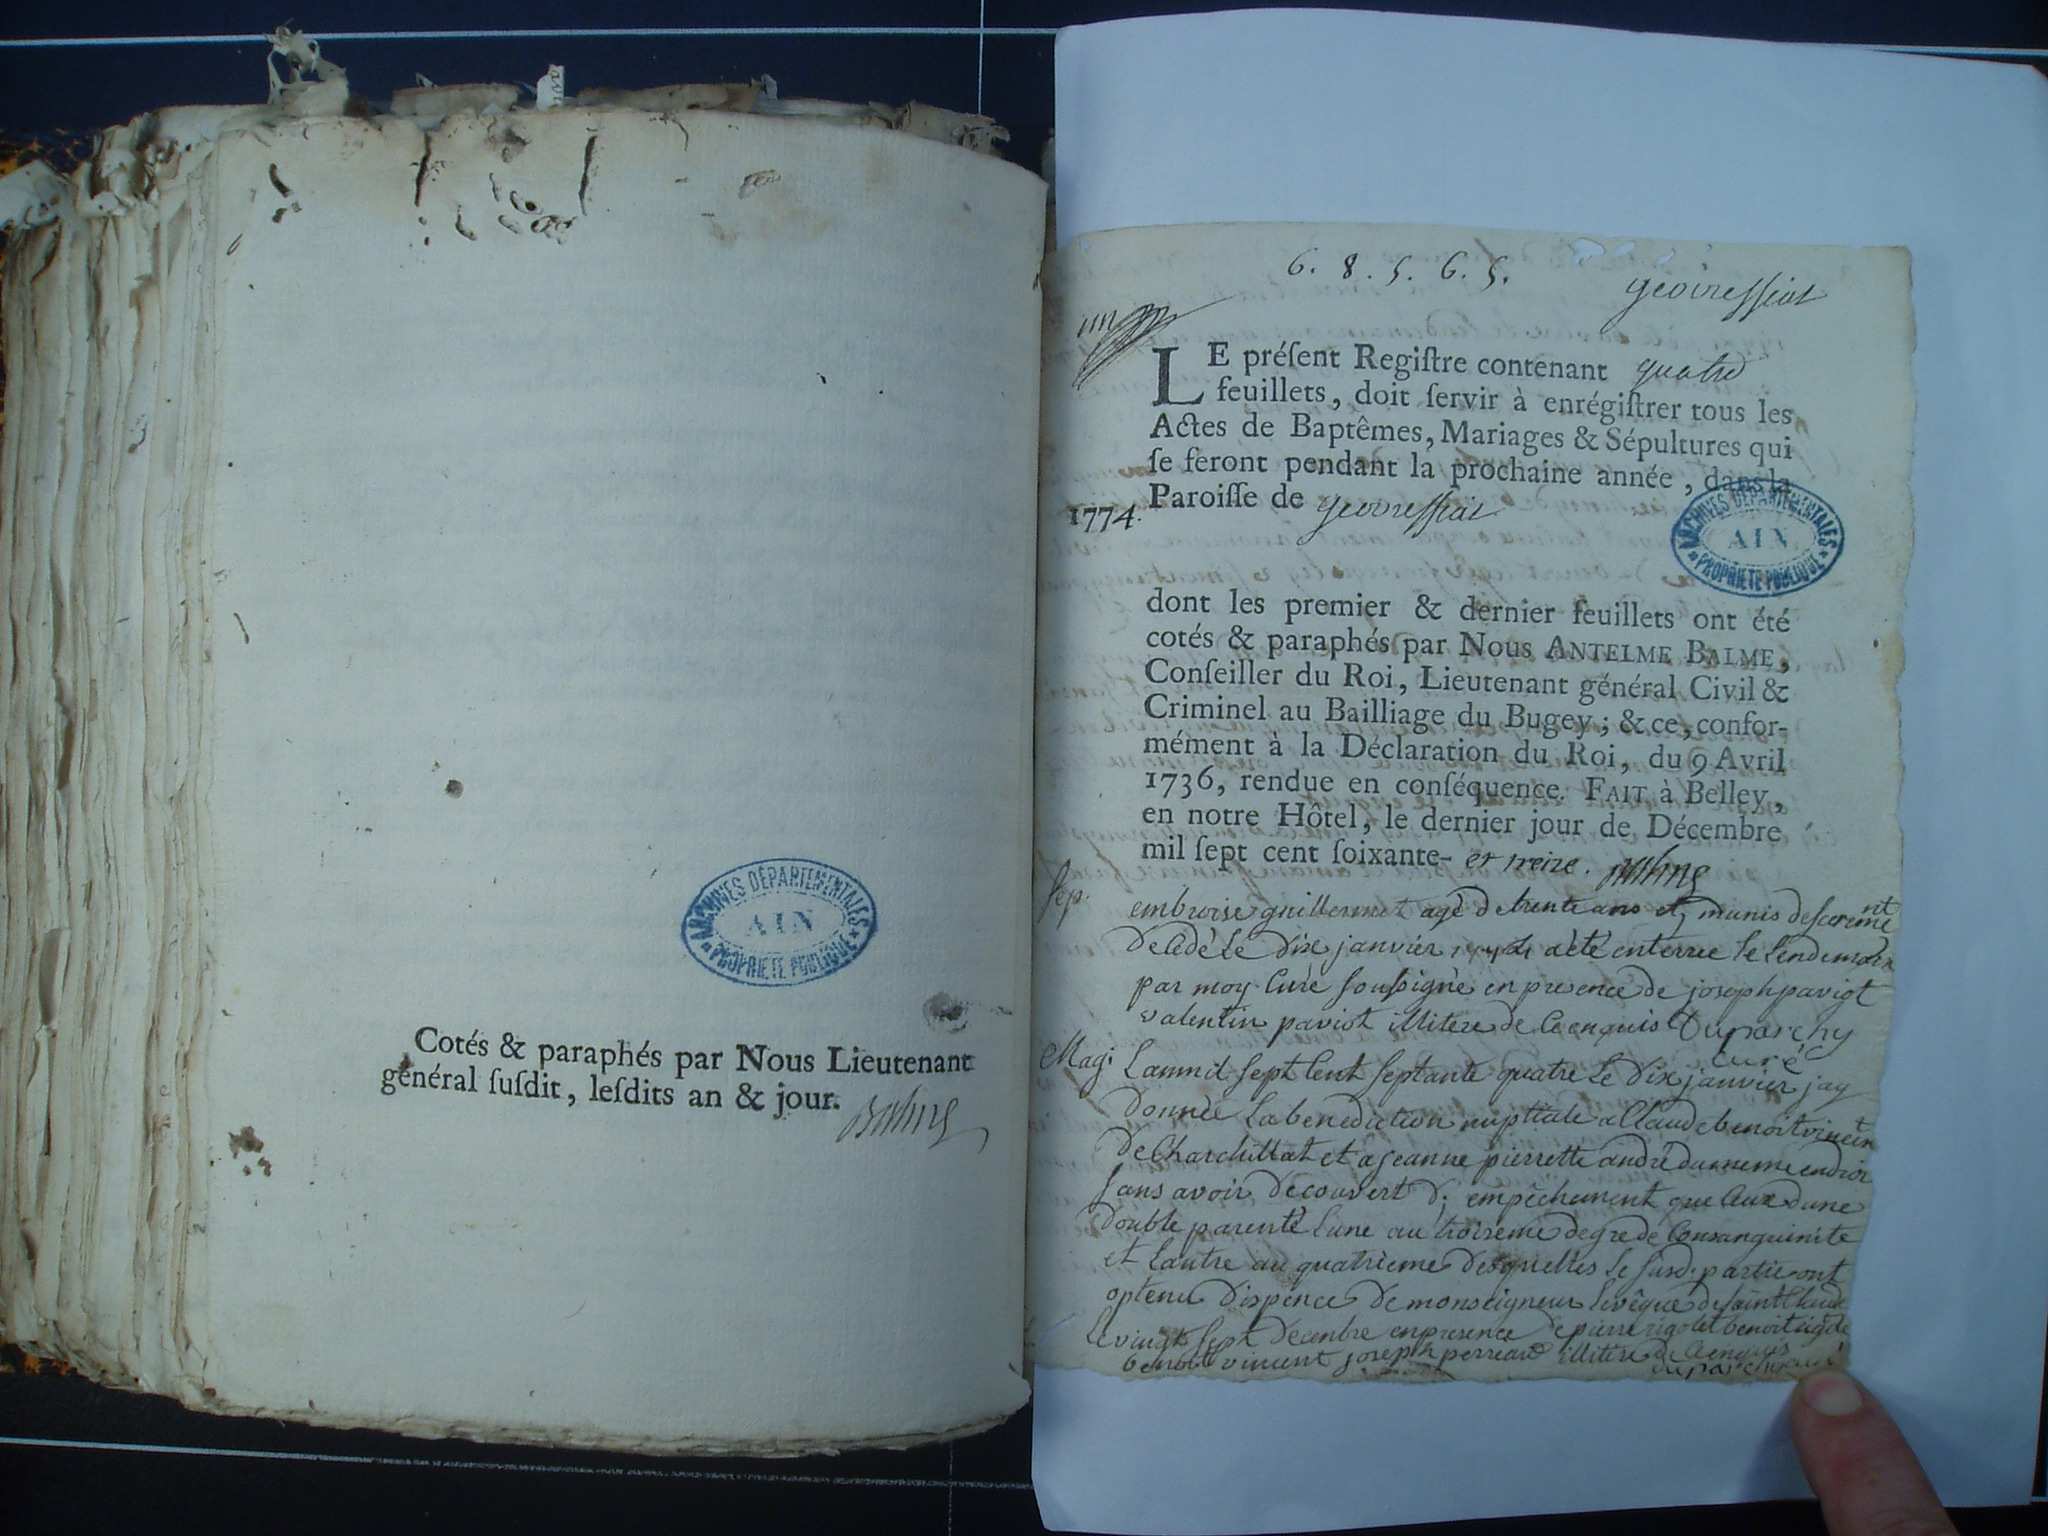 Cotés & paraphés par Nous Lieutenant
général ſuſdit, leſdits an & jour.
ARCHIVES DÉPARTEMENTALES
AIN
PROPRIÉTÉ PUBLIQUE
6. 8. 5. 6. 5.
geovressiat
un
LE préſent Regiſtre contenant quatre
feuillets, doit ſervir à enrégiſtrer tous les
Actes de Baptêmes, Mariages & Sépultures qui
ſe feront pendant la prochaine année, dans la
Paroiſſe de geovressiat
1774.
ARCHIVES DÉPARTEMENTALES
AIN
PROPRIÉTÉ PUBLIQUE
dont les premier & dernier feuillets ont été
cotés & paraphés par Nous ANTELME BALME,
Conſeiller du Roi, Lieutenant général Civil &
Criminel au Bailliage du Bugey; & ce, confor-
mément à la Déclaration du Roi, du 9 Avril
1736, rendue en conſéquence. FAIT à Belley,
en notre Hôtel, le dernier jour de Décembre
mil ſept cent ſoixante- et treize. Balme
Sep.
embroise guillermet agé de trente ans et munis de
decedé le dix janvier a été enterree le lendemain
par moy curé soussigné en presence de joseph paviot
valentin paviot illitere de ce enquis Duparchy
curé
Mag:
Lanmil sept cent septante quatre le dix janvier jay
donnée la benediction nuptiale a Claude benoit vincent
de Charchillat et a jeanne pierrette andré du meme endroi
sans avoir decouvert d' empêchement que ceux dune
double parenté lune au troisieme degre de Consanguinite
et lautre au quatrieme desquelles le susd. partie ont
optenu dispence de monseigneur levêque de saint Claude
le vingt sept decembre en presence de pierre rigolet benoit
benoit vincent joseph perreard illitere de ce enquis
duparchy curé